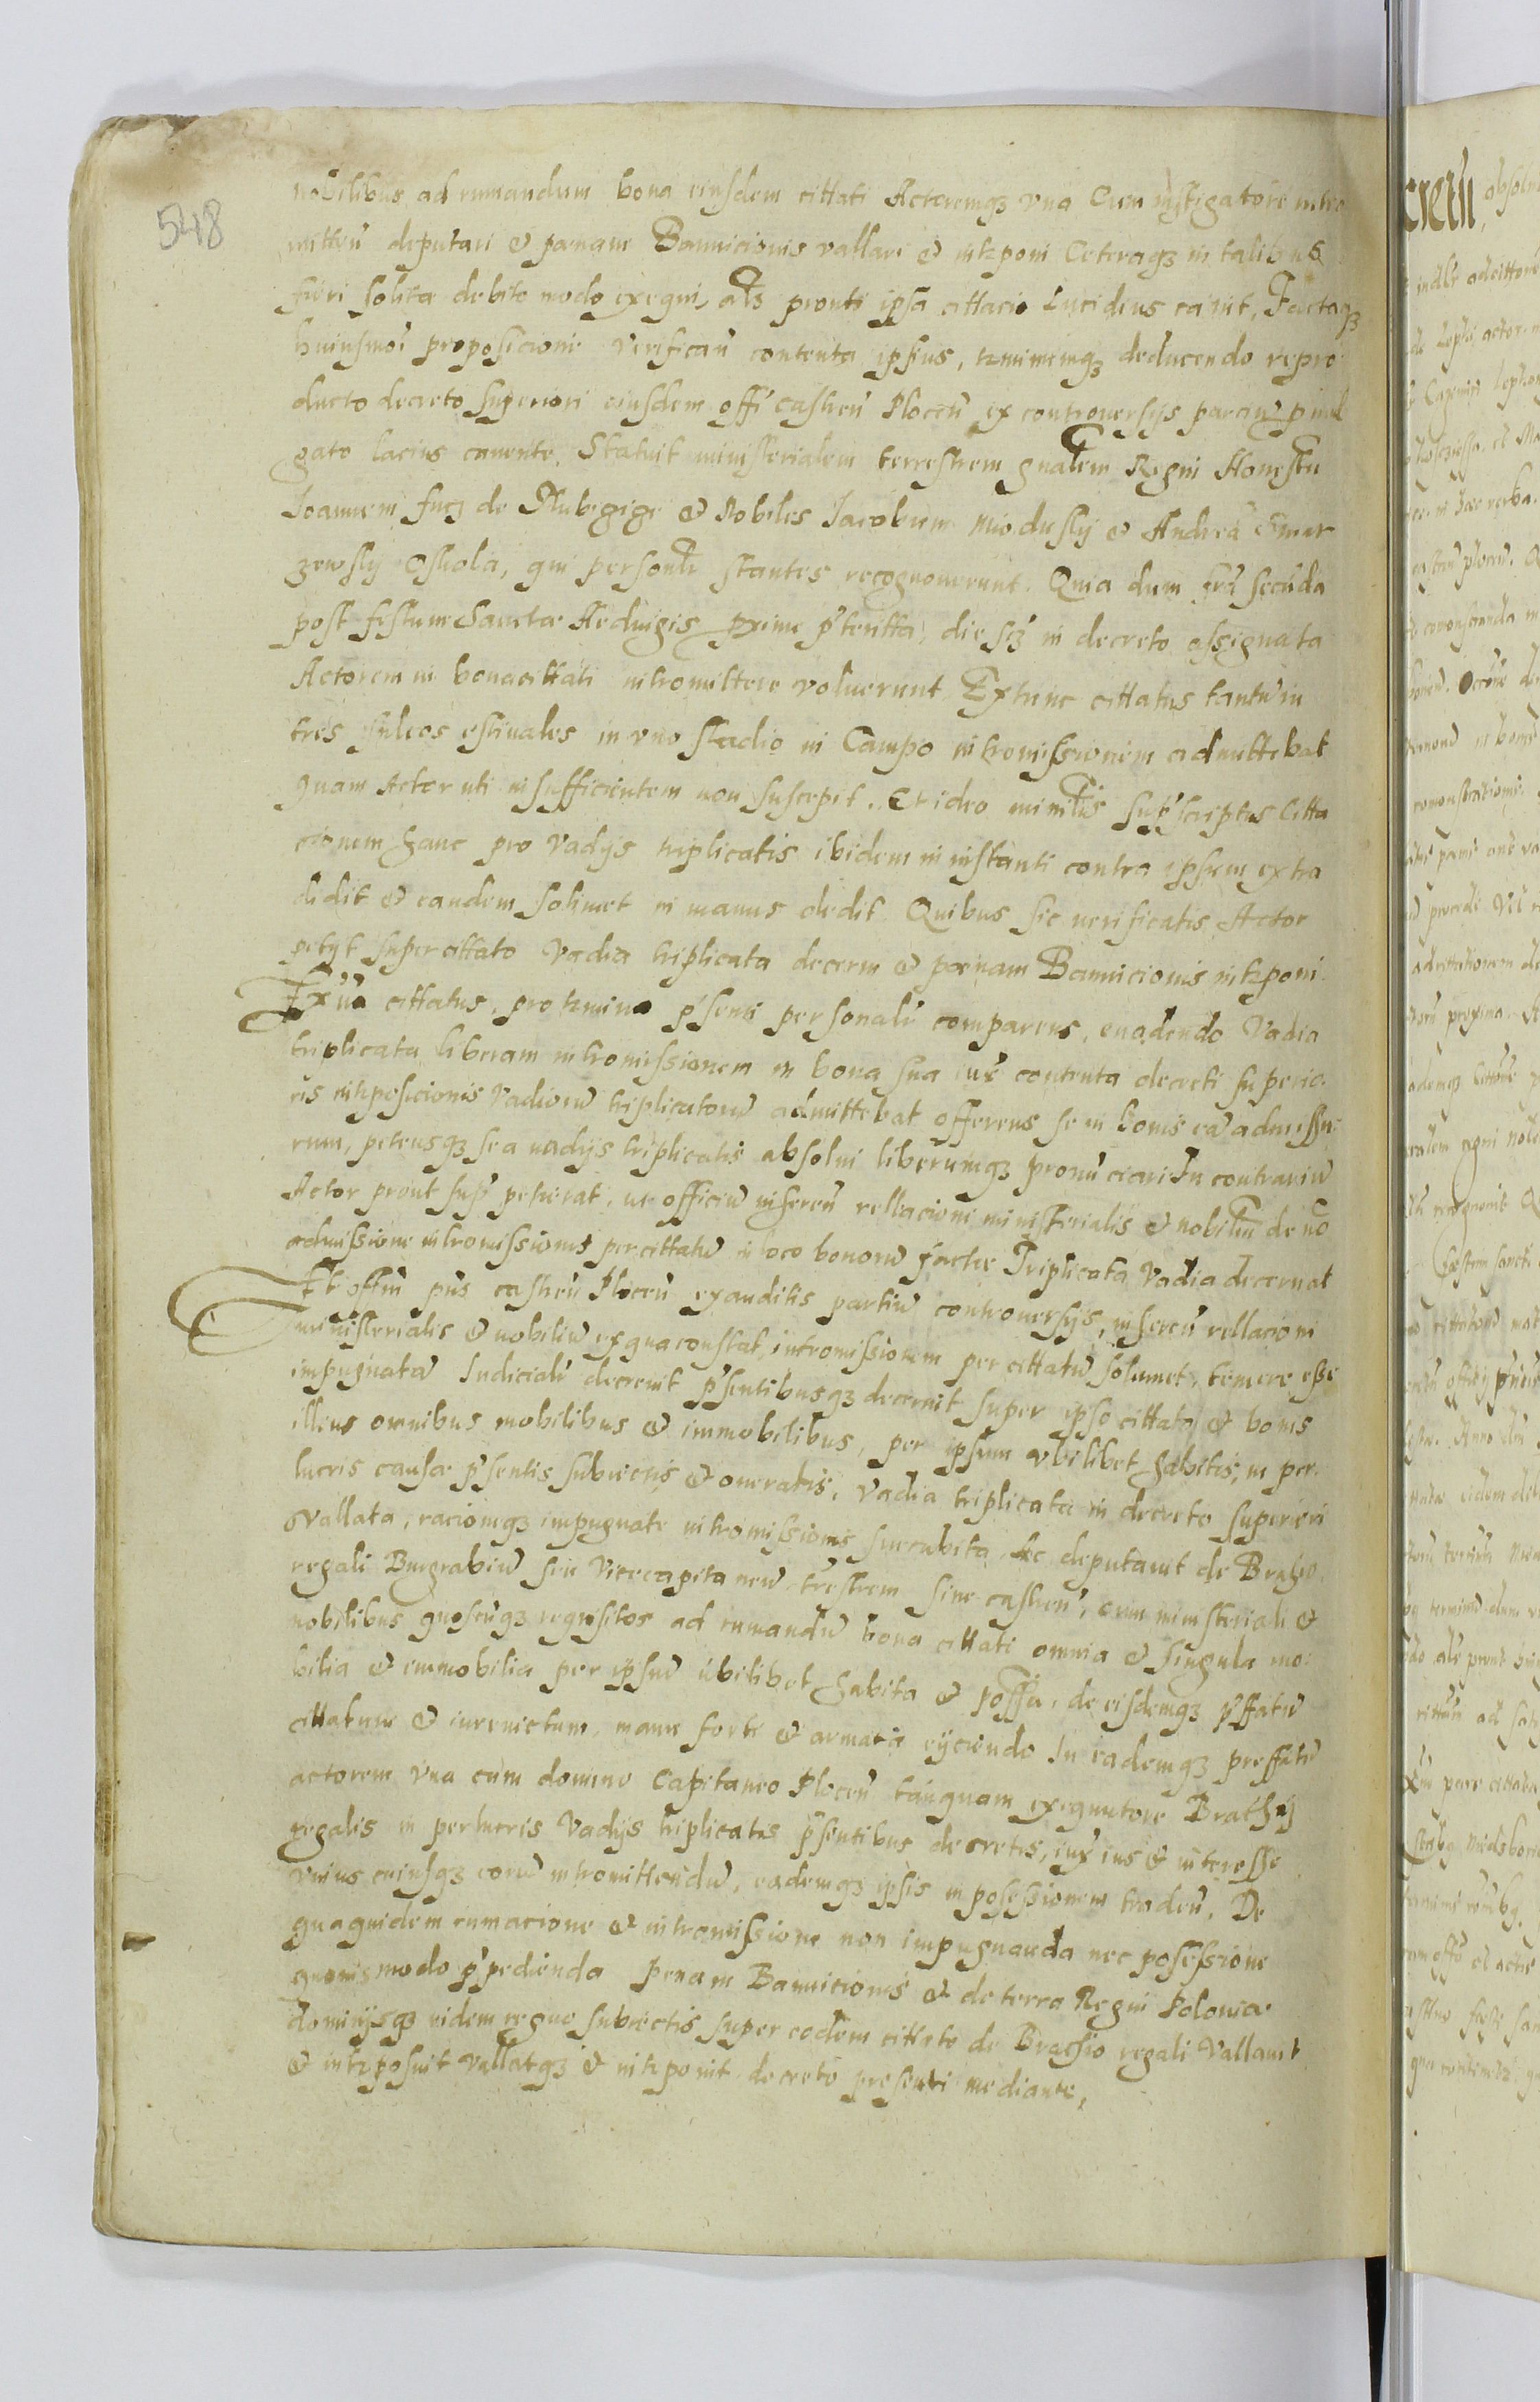 548
nobilibus ad rumandum bona eiusdem cittati Actoremqз vna Cum instigatore intro
mitteñ deputari et pænam Bannicionis vallari et intrponi Ceteraqз in talibus
fieri solita debito modo exequi, als prouti ipsa cittacio lucidius canit, Factaqз
huiusmoi proposicione verificañ contenta ipsius, terminumqз deducendo repro
ducto decreto superiori eiusdem offi castreñ Ploceñ ex controuersijs parciũ p̱mul
gato lacius canente, Statuit ministerialem terrestrem gnalem Regni Honestũ
Ioannem de et Nobiles Iacobum Miodusky et Andreã
Oskola, qui personlr stantes recognouerunt. Quia dum fria secũda
post festum Sanctæ Heduigis proxime p̃teritta, die scз in decreto assignata
Actorem in bona cittati intromittere voluerunt Extunc cittatus tantũ in
tres sulcos estiuales in vno stadio in Campo intromissionem admittebat
quam Actor uti insufficientem non suscepit. Et ideo minrlis sup̃scriptus Citta
cionem hanc pro vadijs triplicatis ibidem in instanti contra ipsum extra
didit et eandem solimet in manus dedit. Quibus sic uerificatis Actor
petijt super cittato vadia triplicata decerni et pænam Bannicionis intrponi.
Ex ũa cittatus, pro termino p̃senti personalr comparens, euadendo vadia
triplicata liberam intromissionem in bona sua iux contenta decreti superio
ris intrposicionis vadiorũ triplicatorũ admittebat offerens se in bonis eã admissu
rum, petensqз se a uadijs triplicatis absolui liberumqз pronũciari In contrariũ
Actor prout sup̃ petierat, ut officiũ inhereñ rellacioni ministerialis et nobilium de nõ
admissione intromissionis per cittatũ in loco bonorũ factæ Triplicata vadia decernat
Et offm p̃ns castreñ Ploceñ exauditis partiũ controuersijs, inhereñ rellacioni
ministerialis et nobiliũ ex qua constat intromissionem per cittatũ solumet, temere esse
impugnatã Iudicialr decreuit p̃sentibusqз decernit super ipso cittato et bonis
illius omnibus mobilibus et immobilibus, per ipsum vbilibet habitis, in per
lucris causæ p̃sentis subiectis et oneratis, vadia triplicata in decreto superiori
vallata, racioneqз impugnatæ intromissionis succubita Ac deputauit de Brahio
regali Burgrabiũ seu Vicecapitaneũ trestrem siue castreñ, cum ministeriali et
nobilibus quoscũqз requisitos ad rumandũ bona cittati omnia et singula mo
bilia et immobilia per ipsũ ubilibet habita et possa, de eisdemqз p̃ffatũ
cittatum et iureuictum, manu forti et armata eijciendo In eademqз preffatũ
actorem vna cum domino Capitaneo Ploceñ tanquam exequutore Brachij
regalis in perlucris vadijs triplicatis p̃sentibus decretis, iux ius et interesse
vnius cuiusqз eorũ intromittendũ, eademqз ipsis in posessionem tradeñ. De
quaquidem rumacione et intromissione non impugnanda nec posessione
quouismodo p̃pedienda pænam Bannicionis et de terra Regni Poloniæ
dominijsqз eidem regno subiectis super eodem cittato de Brachio regali Vallauit
et intrposuit vallatqз et intrponit decreto presenti mediante,